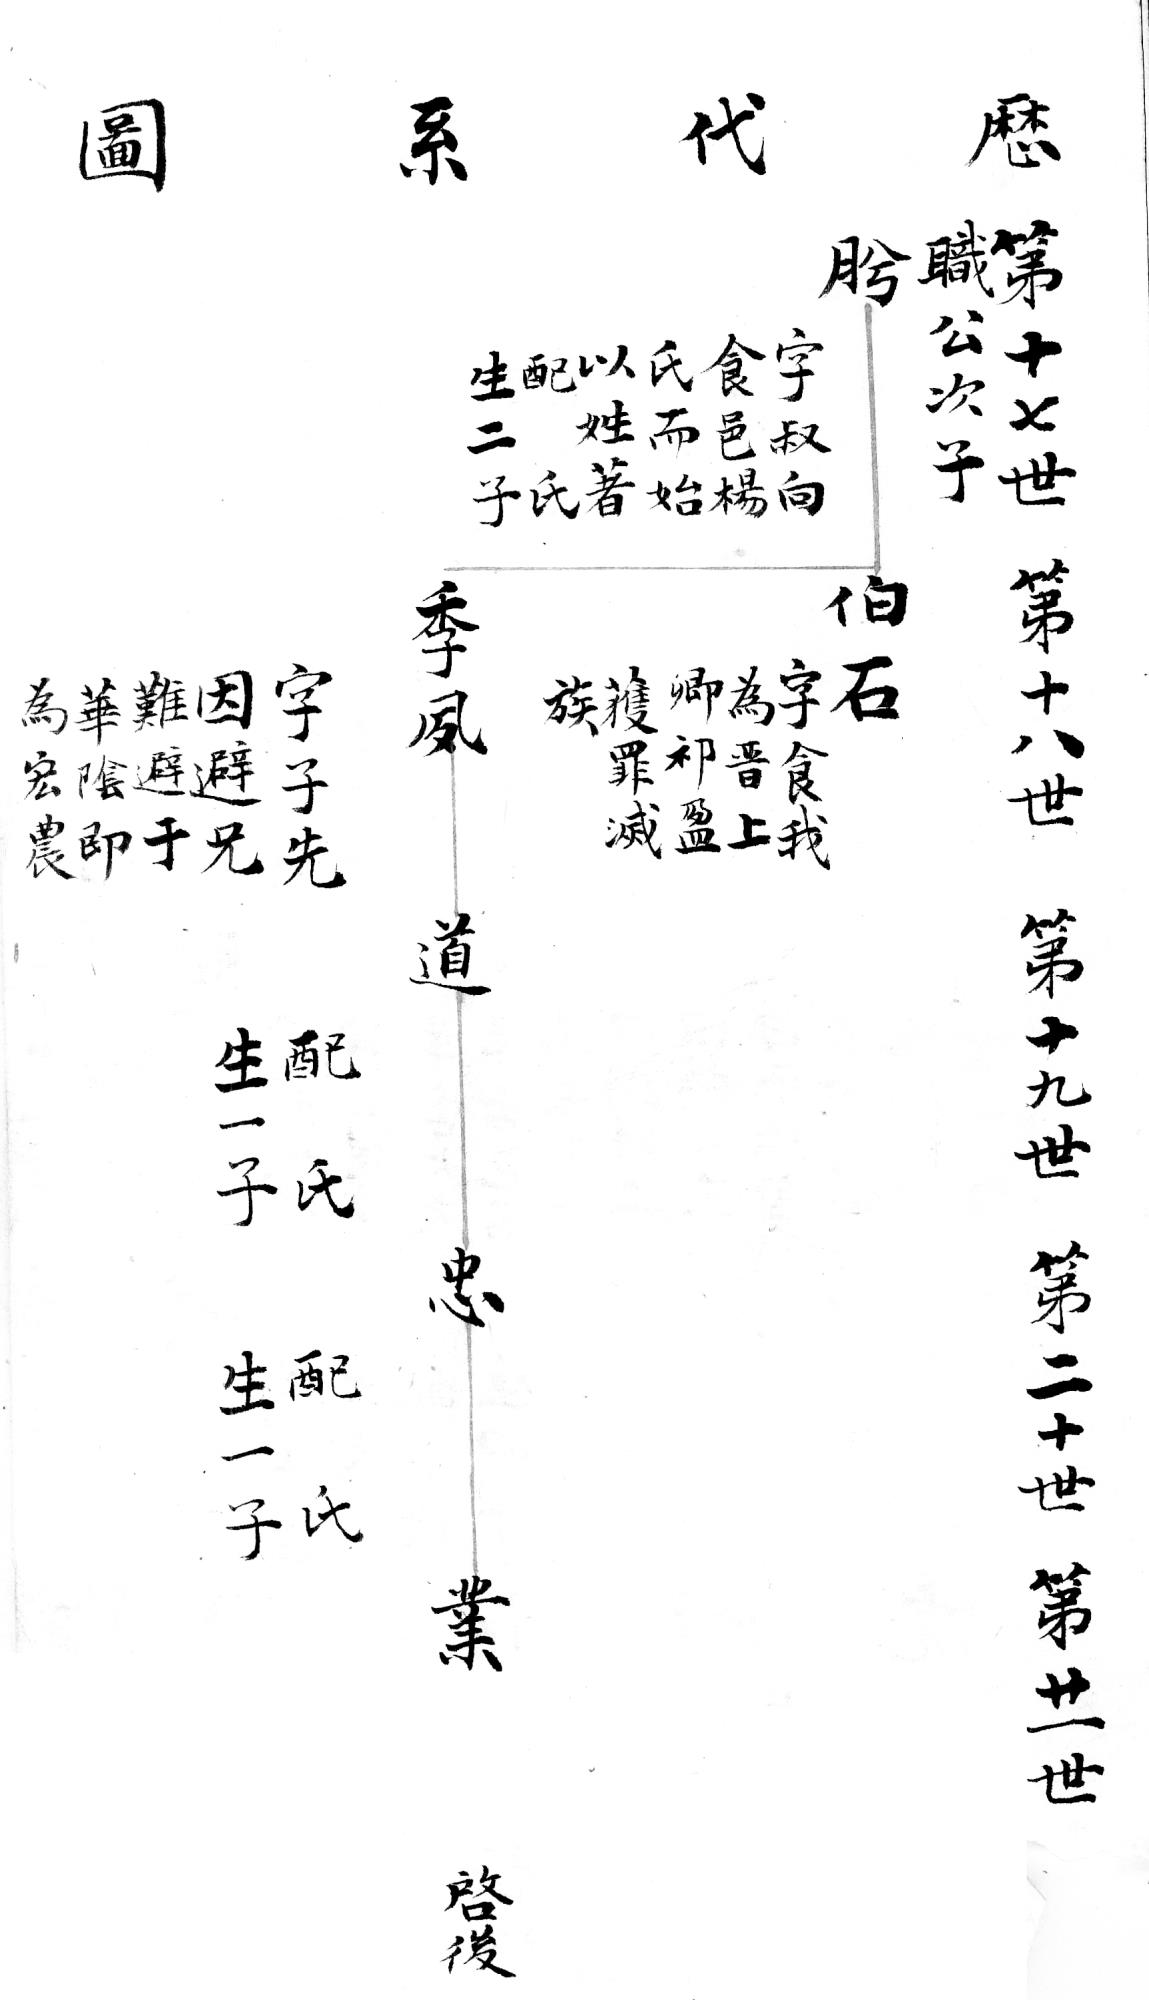 歷代系圖
第十七世
第十八世
第十九世
第二十世
第廿一世
職公次子
肹
字叔向
食邑楊
氏而始
以姓著
配 氏
生二子
伯石
字食我
為晋上
卿祁盈
獲罪滅
族
季夙
字子先
因避兄
難避于
華陰即
為宏農
道
配 氏
生一子
忠
配 氏
生一子
業
啓後